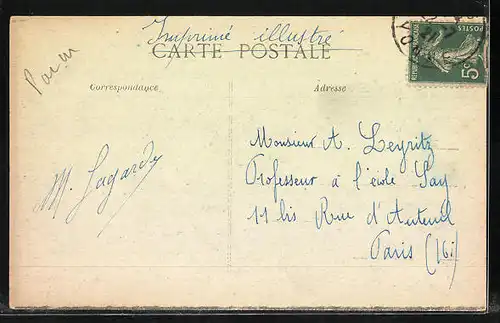 Imprimé illustré
CARTE POSTALE
Correspondance
Adresse
POSTES
5c
Monsieur A. Leyritz
Professeur à l'école Say
11 bis Rue d'Auteuil
Paris (16i)
M. Lagarde